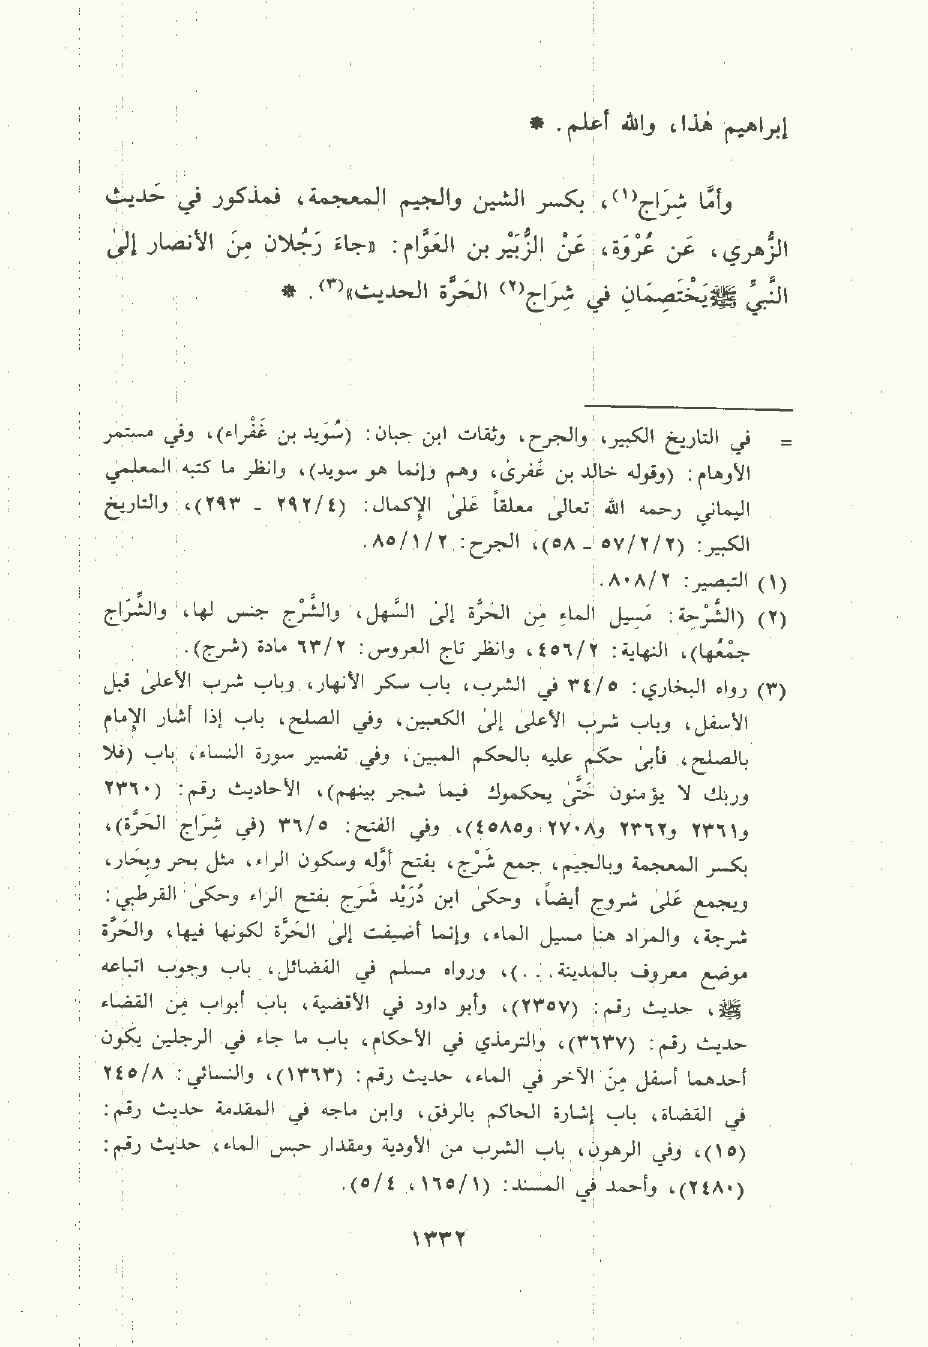 إبراهيم هٰذا، والله أعلم. *
وأمَّا شِرَاج(١)، بكسر الشين والجيم المعجمة، فمذكور في حَديث
الزُّهري، عَن عُرْوَة، عَنْ الزُّبَيْر بن العَوَّام: «جاءَ رَجُلان مِنَ الأنصار إلىٰ
النَّبيِّ ﷺ يَخْتَصِمَانِ في شِرَاج(٢) الحَرَّة الحديث»(٣). *
= في التاريخ الكبير، والجرح، وثقات ابن حبان: (سُوَيد بن غَفْراء)، وفي مستمر
الأوهام: (وقوله خالد بن غَفرىٰ، وهم وإنما هو سويد)، وانظر ما كتبه المعلمي
اليماني رحمه الله تعالىٰ معلقاً عَلىٰ الإكمال: (٢٩٢/٤ - ٢٩٣)، والتاريخ
الكبير: (٥٧/٢/٢ - ٥٨)، الجرح: ٨٥/١/٢.
(١) التبصير: ٨٠٨/٢.
(٢) (الشَّرْجة: مَسِيل الماءِ مِن الحَرَّة إلىٰ السَّهل، والشَّرْج جنس لها، والشِّرَاج
جمْعُها)، النهاية: ٤٥٦/٢، وانظر تاج العروس: ٦٣/٢ مادة (شرج).
(٣) رواه البخاري: ٣٤/٥ في الشرب، باب سكر الأنهار، وباب شرب الأعلىٰ قبل
الأسفل، وباب شرب الأعلىٰ إلىٰ الكعبين، وفي الصلح، باب إذا أشار الإمام
بالصلح، فأبىٰ حكم عليه بالحكم المبين، وفي تفسير سورة النساء، باب (فلا
وربك لا يؤمنون حَتَّىٰ يحكموك فيما شجر بينهم)، الأحاديث رقم: (٢٣٦٠
و٢٣٦١ و٢٣٦٢ و٢٧٠٨ و٤٥٨٥)، وفي الفتح: ٣٦/٥ (في شِرَاج الحَرَّة)،
بكسر المعجمة وبالجيم، جمع شَرْج، بفتح أوَّله وسكون الراء، مثل بحر وبِحَار،
ويجمع عَلىٰ شروج أيضاً، وحكىٰ ابن دُرَيْد شَرَج بفتح الراء وحكىٰ القرطبي:
شرجة، والمراد هنا مسيل الماء، وإنما أضيفت إلىٰ الحَرَّة لكونها فيها، والحَرَّة
موضع معروف بالمدينة. . .)، ورواه مسلم في الفضائل، باب وجوب اتباعه
ﷺ، حديث رقم: (٢٣٥٧)، وأبو داود في الأقضية، باب أبواب مِن القضاء
حديث رقم: (٣٦٣٧)، والترمذي في الأحكام، باب ما جاء في الرجلين يكون
أحدهما أسفل مِنَ الآخر في الماء، حديث رقم: (١٣٦٣)، والنسائي: ٢٤٥/٨
في القضاة، باب إشارة الحاكم بالرفق، وابن ماجه في المقدمة حديث رقم:
(١٥)، وفي الرهون، باب الشرب من الأودية ومقدار حبس الماء، حديث رقم:
(٢٤٨٠)، وأحمد في المسند: (١٦٥/١، ٥/٤).
١٣٣٢